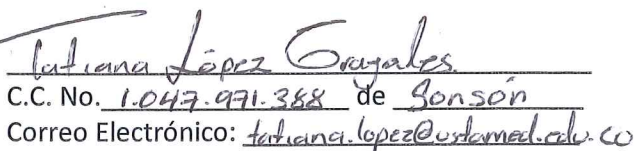 Tatiana López Grajales.
C.C. No. 1.047.971.388 de Sonsón
Correo Electrónico: tatiana.lopez@ustamed.edu.co